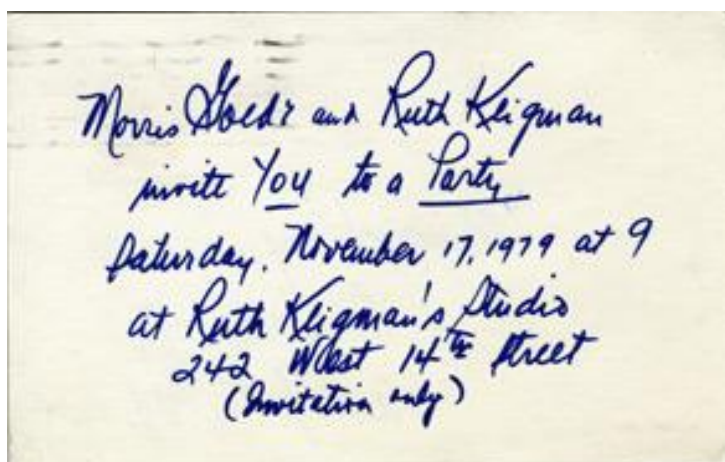 Morris Golde and Ruth Kligman
invite You to a Party
Saturday, November 17, 1979 at 9
at Ruth Kligman's Studio
242 West 14th Street
(Invitation only)